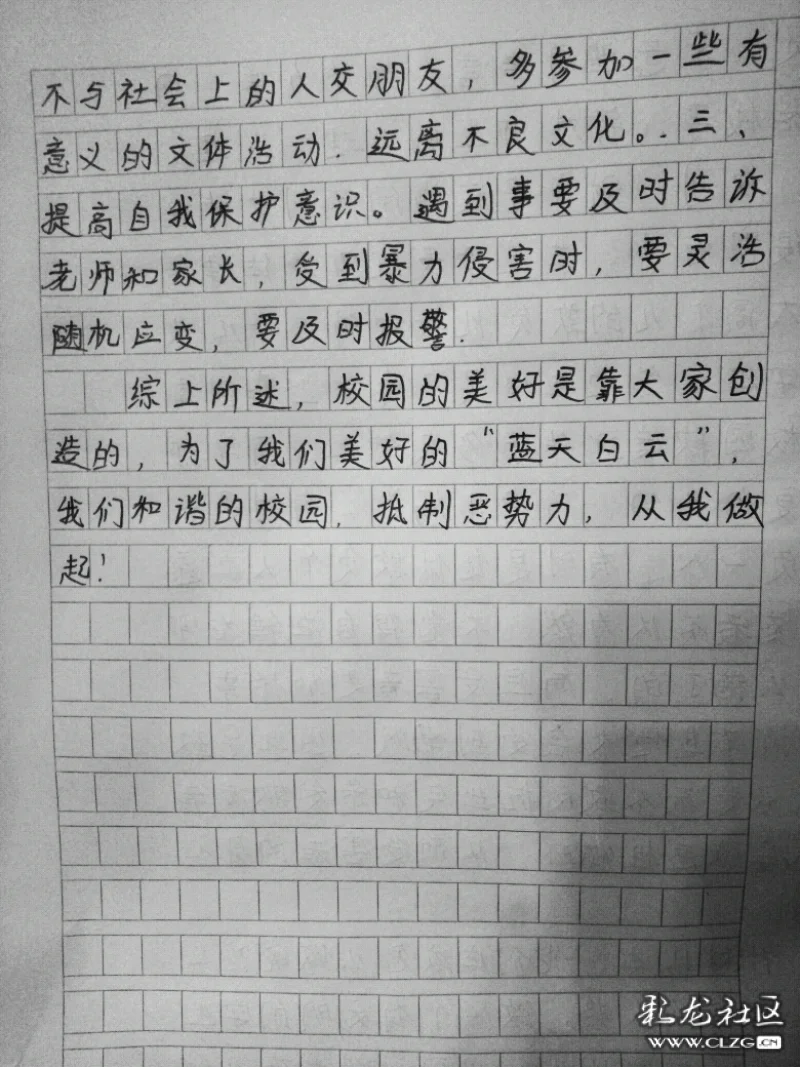 不与社会上的人交朋友，多参加一些有
意义的文体活动．远离不良文化。．三、
提高自我保护意识。遇到事要及时告诉
老师和家长，受到暴力侵害时，要灵活
随机应变，要及时报警．
综上所述，校园的美好是靠大家创
造的，为了我们美好的“蓝天白云”，
我们和谐的校园．抵制恶势力，从我做
起！
彩龙社区
WWW.CLZG.CN